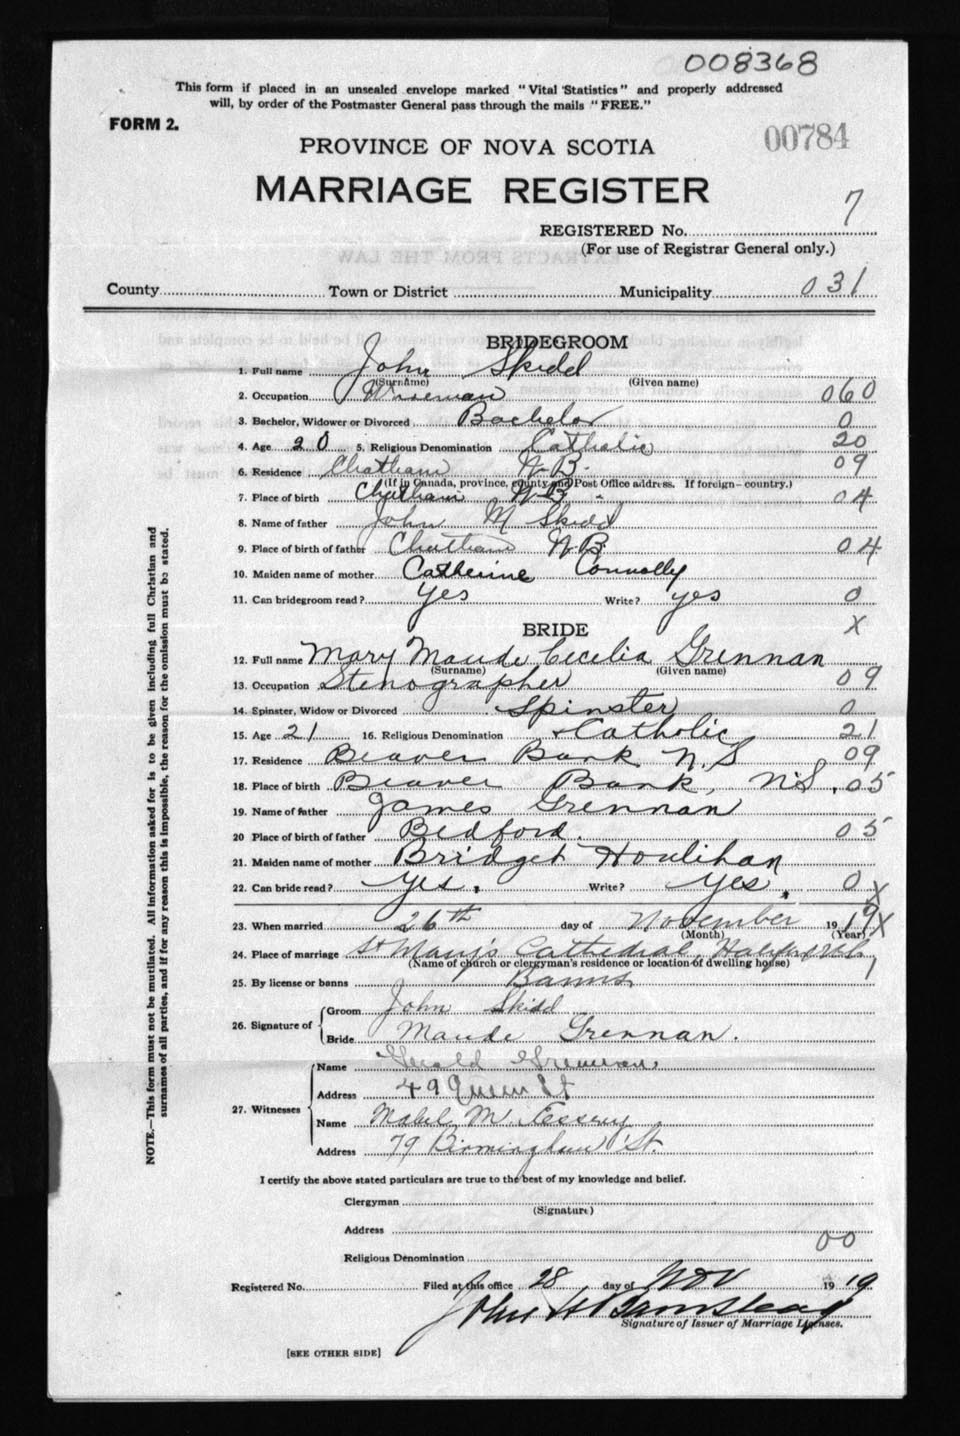 008368
This form if placed in an unsealed envelope marked "Vital Statistics" and properly addressed
will, by order of the Postmaster General pass through the mails "FREE."
FORM 2.
00784
PROVINCE OF NOVA SCOTIA
MARRIAGE REGISTER
REGISTERED No. 7
(For use of Registrar General only.)
County Town or District Municipality 031
BRIDEGROOM
1. Full name John Skidd
(Surname) (Given name)
2. Occupation Wireman 060
3. Bachelor, Widower or Divorced Bachelor 0
4. Age 20 5. Religious Denomination Catholic 20
6. Residence Chatham N.B. 09
(If in Canada, province, county and Post Office address. If foreign—country.)
7. Place of birth Chatham N B 04
8. Name of father John M Skidd
9. Place of birth of father Chatham N.B. 04
10. Maiden name of mother Catherine Connolly
11. Can bridegroom read? Yes Write? yes 0
BRIDE X
12. Full name Mary Maude Cecelia Grennan
(Surname) (Given name)
13. Occupation Stenographer 09
14. Spinster, Widow or Divorced Spinster 0
15. Age 21 16. Religious Denomination Catholic 21
17. Residence Beaver Bank N.S 09
18. Place of birth Beaver Bank, N.S. 05
19. Name of father James Grennan
20 Place of birth of father Bedford. 05
21. Maiden name of mother Bridget Houlihan
22. Can bride read? Yes. Write? Yes. 0 X
23. When married 26th day of November 1919 X
(Month) (Year)
24. Place of marriage St Mary's Cathedral, Halifax, N.S.
(Name of church or clergyman's residence or location of dwelling house)
25. By license or banns Banns 1
26. Signature of Groom John Skidd
Bride Maude Grennan.
27. Witnesses Name Gerald Grennan
Address 49 Queen St
Name Mabel M.
Address 79 Birmingham St.
I certify the above stated particulars are true to the best of my knowledge and belief.
Clergyman
(Signature)
Address
00
Religious Denomination
Registered No. Filed at this office 28 day of Nov 1919
John H
Signature of Issuer of Marriage Licenses.
[SEE OTHER SIDE]
NOTE.—This form must not be mutilated. All information asked for is to be given including full Christian and
surnames of all parties, and if for any reason this is impossible, the reason for the omission must be stated.